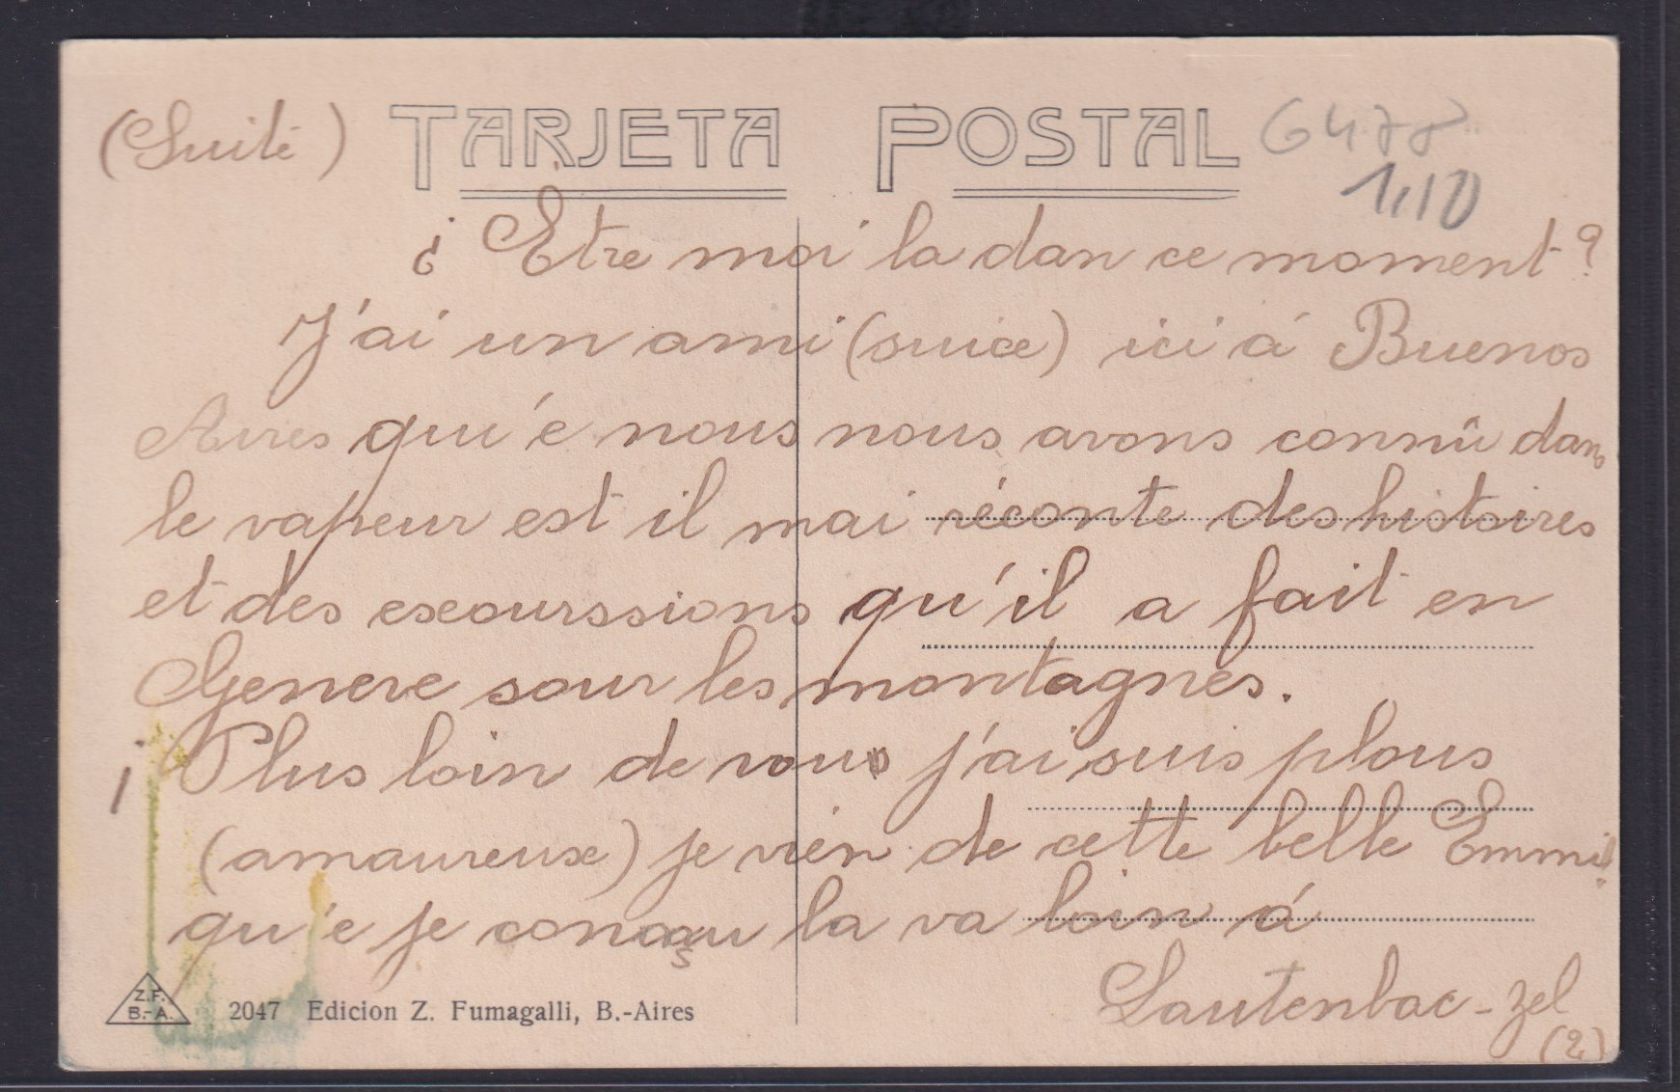 (Suite)
TARJETA POSTAL
6478
1,10
¿ Etre moi la dan ce moment ?
J'ai un ami (suice) ici á Buenos
Aires qu'e nous nous avons connû dans
le vapeur est il mai réconte des histoires
et des excourssions qu'il a fait en
Geneve sour les montagnes.
¡ Plus loin de vous j'ai suis plous
(amaureuxe) je vien de cette belle Emmi
qu'e je conaçu la va loin á
Lautenbac-zel
(2)
Z.F.
B.-A.
2047 Edicion Z. Fumagalli, B.-Aires